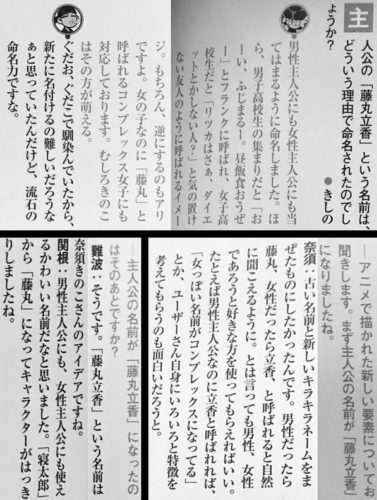 主人公の「藤丸立香」という名前は、
どういう理由で命名されたのでし
ょうか？ ●きしの
男性主人公にも女性主人公にも当
てはまるように命名しました。ほ
ら、男子高校生の集まりだと「お
ーい、ふじまるー。昼飯食おうぜ
ー」とフランクに呼ばれ、女子高
校生だと「リツカはさぁ、ダイエ
ットとかしない人？」と気の置け
ない友人のように呼ばれるイメー
ジ。もちろん、逆にするのもアリ
ですよ。女の子なのに「藤丸」と
呼ばれるコンプレックス女子にも
対応しております。むしろきのこ
はその方が萌える。
ぐだお、ぐだこで馴染んでいたから、
新たに名付けるの難しいだろうな
ぁと思っていたんだけど、流石の
命名力ですな。
―アニメで描かれた新しい要素についてお
聞きします。まず主人公の名前が「藤丸立香」
になりましたね。
奈須：古い名前と新しいキラキラネームをま
ぜたものにしたかったんです。男性だったら
藤丸、女性だったら立香、と呼ばれると自然
に聞こえるように。とは言っても男性、女性
であろうと好きな方を使ってもらえればいい。
たとえば男性主人公なのに立香と呼ばれれば、
「女っぽい名前がコンプレックスになってる」
とか、ユーザーさん自身にいろいろと特徴を
考えてもらうのも面白いだろうと。
―主人公の名前が「藤丸立香」になったの
はそのあとですか？
難波：そうです。「藤丸立香」という名前は
奈須きのこさんのアイデアですね。
関根：男性主人公にも、女性主人公にも使え
るかわいい名前だなと思いました。「寝太郎」
から「藤丸」になってキャラクターがはっき
りしましたね。